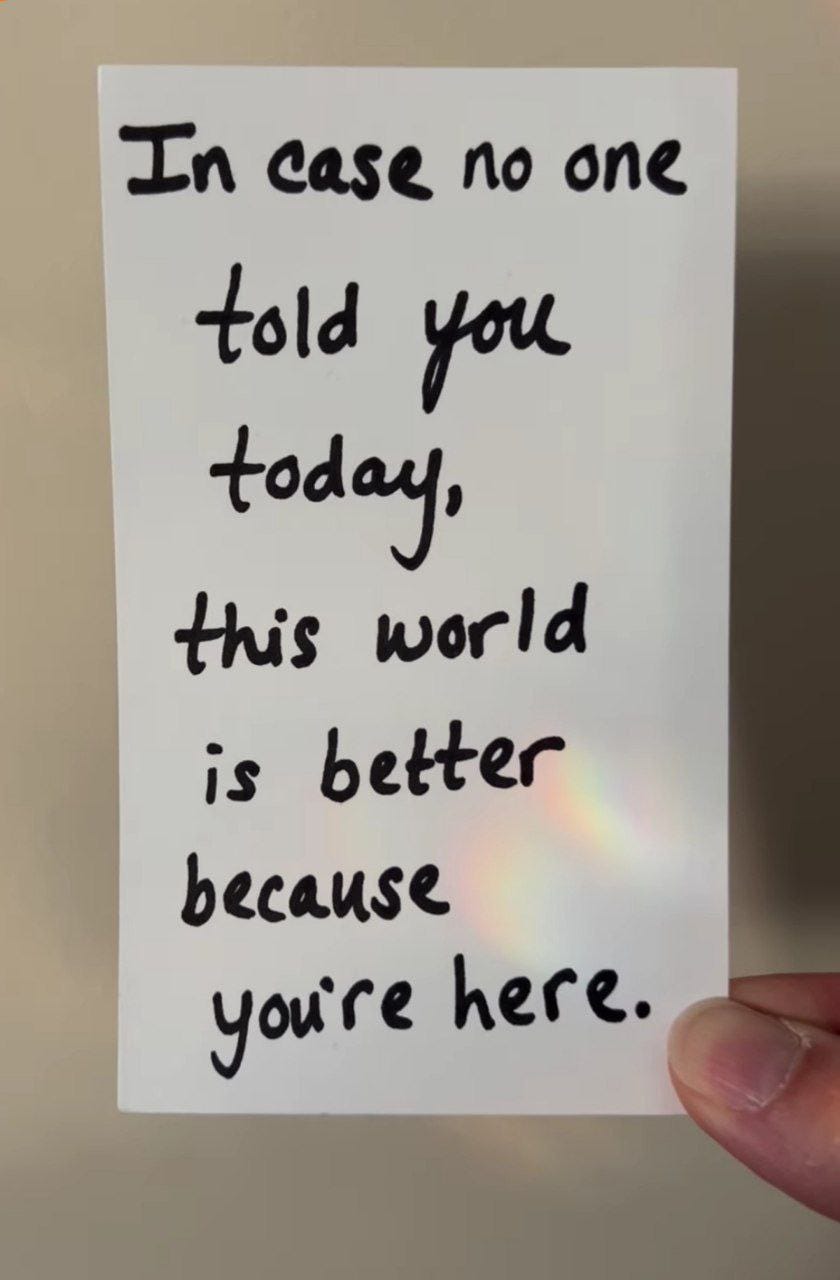 In case no one
told you
today,
this world
is better
because
you're here.